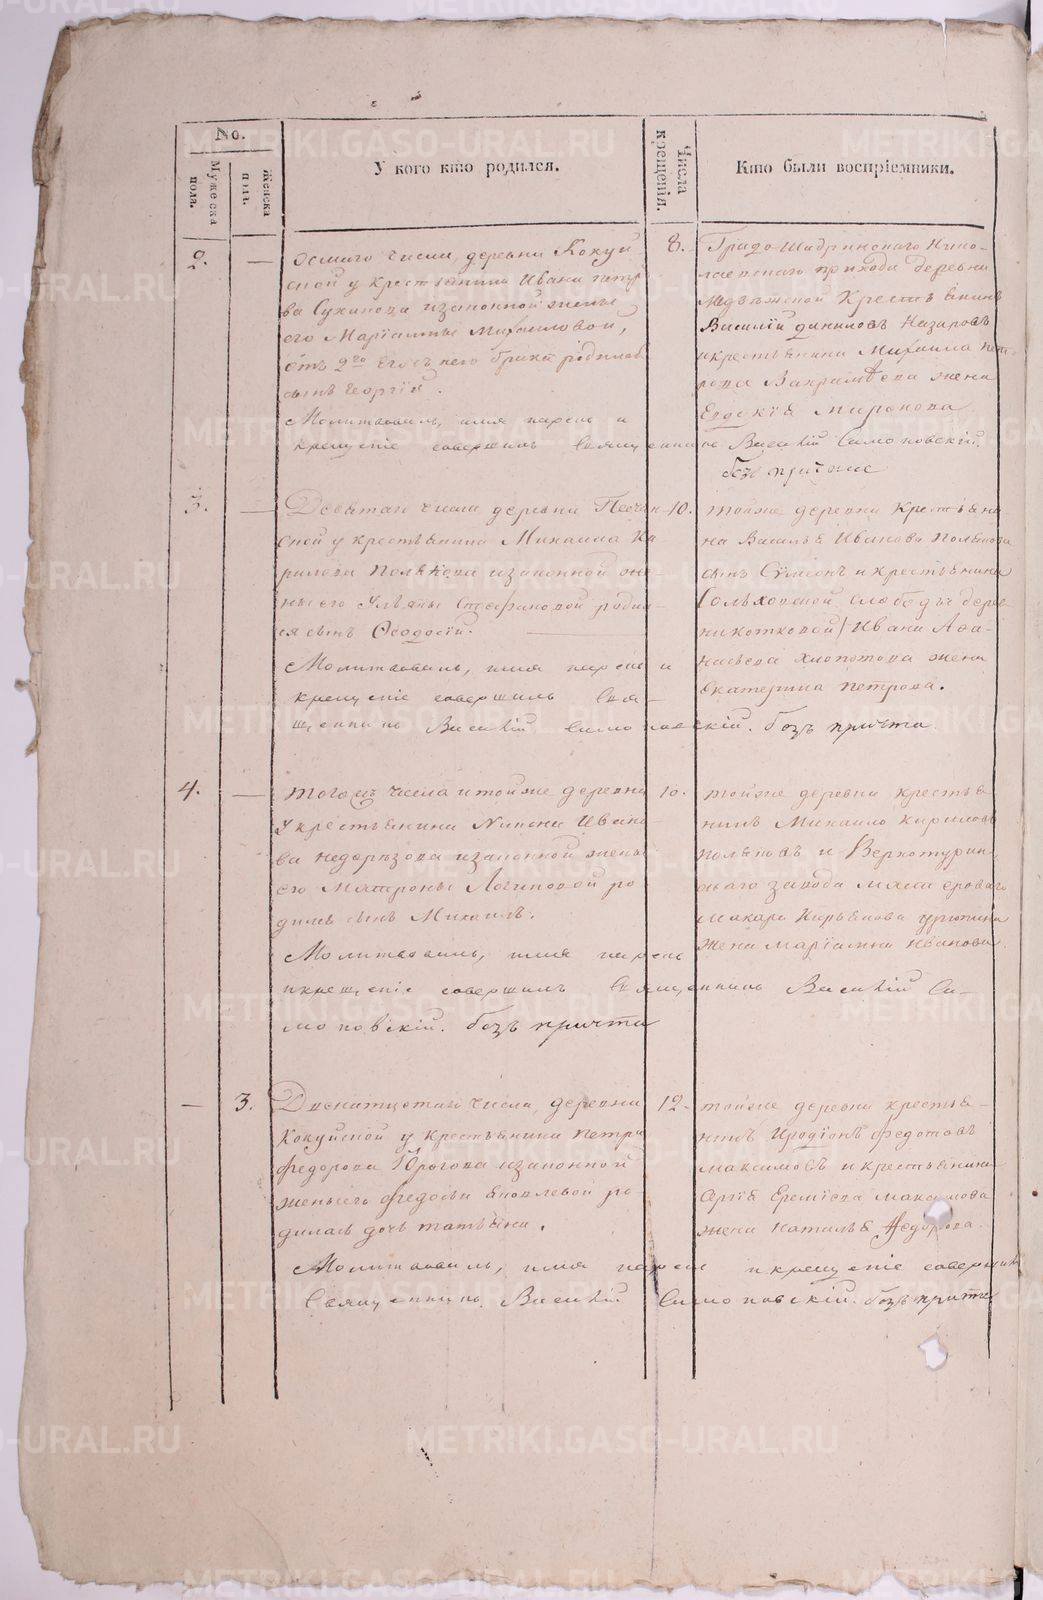 No.
Мужеска пола.
Женска пола.
У кого кто родился.
Числа крещенія.
Кто были воспріемники.
2. —
осмаго числа, деревни Кокуй
ской у крестьянина Ивана петр
ва Суханова изаконной жены
его Маріамны Михаиловой,
отъ 2го его съ нею брака родился
сынъ Георгій.
Молитвовалъ, имя нарекъ и
крещеніе совершилъ Священникъ Василій Симоновскій.
безъ причта
8.
Градо-Шадринскаго Нико-
лаевскаго прихода деревни
Крестьянинъ
Василій даниловъ Назаровъ
икрестьянина Михаила пет-
рова жена
Евдокія миронова
3. —
Девятаго числа деревни Песчан
ской у крестьянина Михаила Ки
рилова Полькова изаконной же
ны его Ульяны Стефановой родил
ся сынъ Ѳеодосій.
Молитвовалъ, имя нарекъ и
крещеніе совершилъ Свя-
щенникъ Василій Симоновскій. безъ причта
10.
тойже деревни крестьяни
на Василья Иванова Полькова
сынъ Сѵмеонъ икрестьянина
(ольховской слободы дерев
ни котковой) Ивана Аѳа-
насьева хлопотова жена
Екатерина петрова.
4. —
тогожъ числа итойже деревни
у крестьянина Никона Ивано-
ва недорѣзова изаконной жены
его Матроны Логиновой ро
дился сынъ Михаилъ.
Молитвовалъ, имя нарекъ
икрещеніе совершилъ Священникъ Василій Си-
моновскій. безъ причта
10.
тойже деревни крестья
нинъ Михаило кириловъ
польковъ и Верхотурин-
скаго завода мастероваго
Макара
жена маріамна иванова.
— 3.
Двенатцетаго числа, деревни
Кокуйской у крестьянина петра
федорова изаконной
жены его федосьи яковлевой ро-
дилась дочь татьяна.
Молитвовалъ, имя нарекъ и крещеніе совершилъ
Священникъ Василій Симоновскій. безъ причта
12.
тойже деревни крестья-
нинъ Иродіонъ федотовъ
максимовъ и крестьянина
Еремѣева максимова
жена наталья Федорова.
METRIKI.GASO-URAL.RU